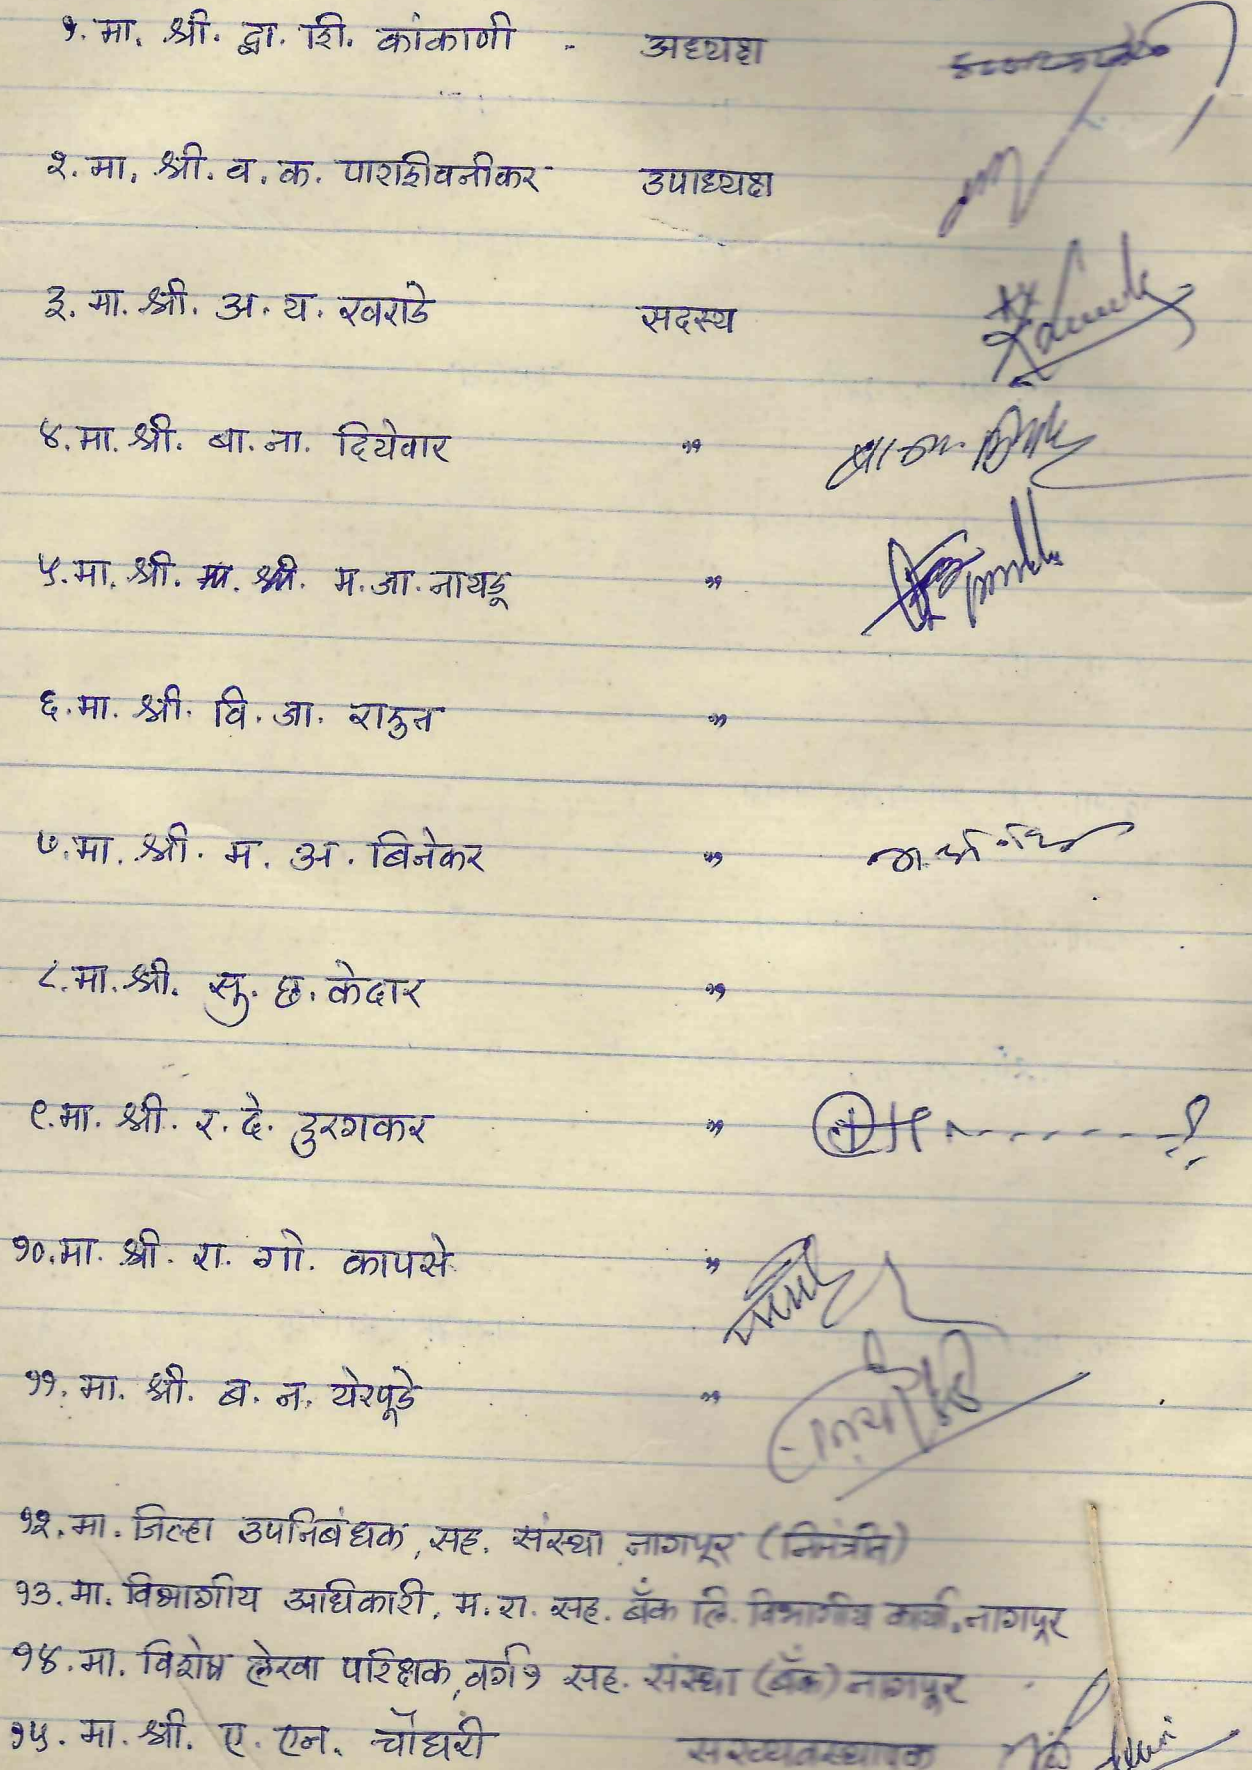 १. मा. श्री. द्वा. शि. कांकाणी - अध्यक्ष
२. मा. श्री. व. क. पाराशीवनीकर उपाध्यक्ष
३. मा. श्री. अ. य. खराडे सदस्य
४. मा. श्री. बा. ना. दियेवार "
५. मा. श्री. म. जा. नायडू "
६. मा. श्री. वि. जा. राऊत "
७. मा. श्री. म. अ. बिनेकर "
८. मा. श्री. सु. छ. केदार "
९. मा. श्री. र. दे. दुरगकर "
१०. मा. श्री. रा. गो. कापसे "
११. मा. श्री. ब. न. येरपूडे "
१२. मा. जिल्हा उपनिबंधक, सह. संस्था नागपूर (निमंत्रीत)
१३. मा. विभागीय अधिकारी, म. रा. सह. बँक लि. विभागीय कार्या. नागपूर
१४. मा. विशेष लेखा परिक्षक, वर्ग १ सह. संस्था (बँक) नागपूर
१५. मा. श्री. ए. एन. चौधरी सरव्यवस्थापक